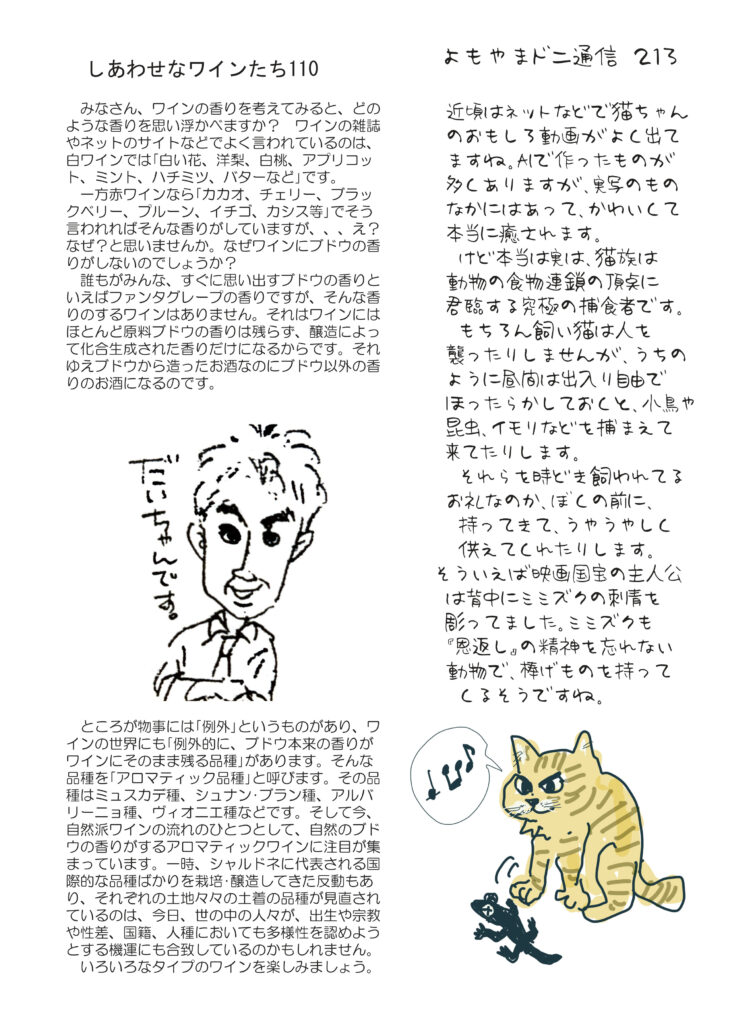 しあわせなワインたち110
みなさん、ワインの香りを考えてみると、どの
ような香りを思い浮かべますか？　ワインの雑誌
やネットのサイトなどでよく言われているのは、
白ワインでは「白い花、洋梨、白桃、アプリコッ
ト、ミント、ハチミツ、バターなど」です。
一方赤ワインなら「カカオ、チェリー、ブラッ
クベリー、プルーン、イチゴ、カシス等」でそう
言われればそんな香りがしていますが、、、え？
なぜ？と思いませんか。なぜワインにブドウの香
りがしないのでしょうか？
誰もがみんな、すぐに思い出すブドウの香りと
いえばファンタグレープの香りですが、そんな香
りのするワインはありません。それはワインには
ほとんど原料ブドウの香りは残らず、醸造によっ
て化合生成された香りだけになるからです。それ
ゆえブドウから造ったお酒なのにブドウ以外の香
りのお酒になるのです。
だいちゃんです。
ところが物事には「例外」というものがあり、ワ
インの世界にも「例外的に、ブドウ本来の香りが
ワインにそのまま残る品種」があります。そんな
品種を「アロマティック品種」と呼びます。その品
種はミュスカデ種、シュナン・ブラン種、アルバ
リーニョ種、ヴィオニエ種などです。そして今、
自然派ワインの流れのひとつとして、自然のブド
ウの香りがするアロマティックワインに注目が
集まっています。一時、シャルドネに代表される国
際的な品種ばかりを栽培・醸造してきた反動もあ
り、それぞれの土地々々の土着の品種が見直され
ているのは、今日、世の中の人々が、出生や宗教
や性差、国籍、人種においても多様性を認めよう
とする機運にも合致しているのかもしれません。
いろいろなタイプのワインを楽しみましょう。
よもやまドニ通信 213
近頃はネットなどで猫ちゃん
のおもしろ動画がよく出て
ますね。AIで作ったものが
多くありますが、実写のもの
なかにはあって、かわいくて
本当に癒されます。
けど本当は実は、猫族は
動物の食物連鎖の頂点に
君臨する究極の捕食者です。
もちろん飼い猫は人を
襲ったりしませんが、うちの
ように昼間は出入り自由で
ほったらかしておくと、小鳥や
昆虫、イモリなどを捕まえて
来てたりします。
それらを時どき飼われてる
お礼なのか、ぼくの前に、
持ってきて、うやうやしく
供えてくれたりします。
そういえば映画国宝の主人公
は背中にミミズクの刺青を
彫ってました。ミミズクも
『恩返し』の精神を忘れない
動物で、捧げものを持って
くるそうですね。